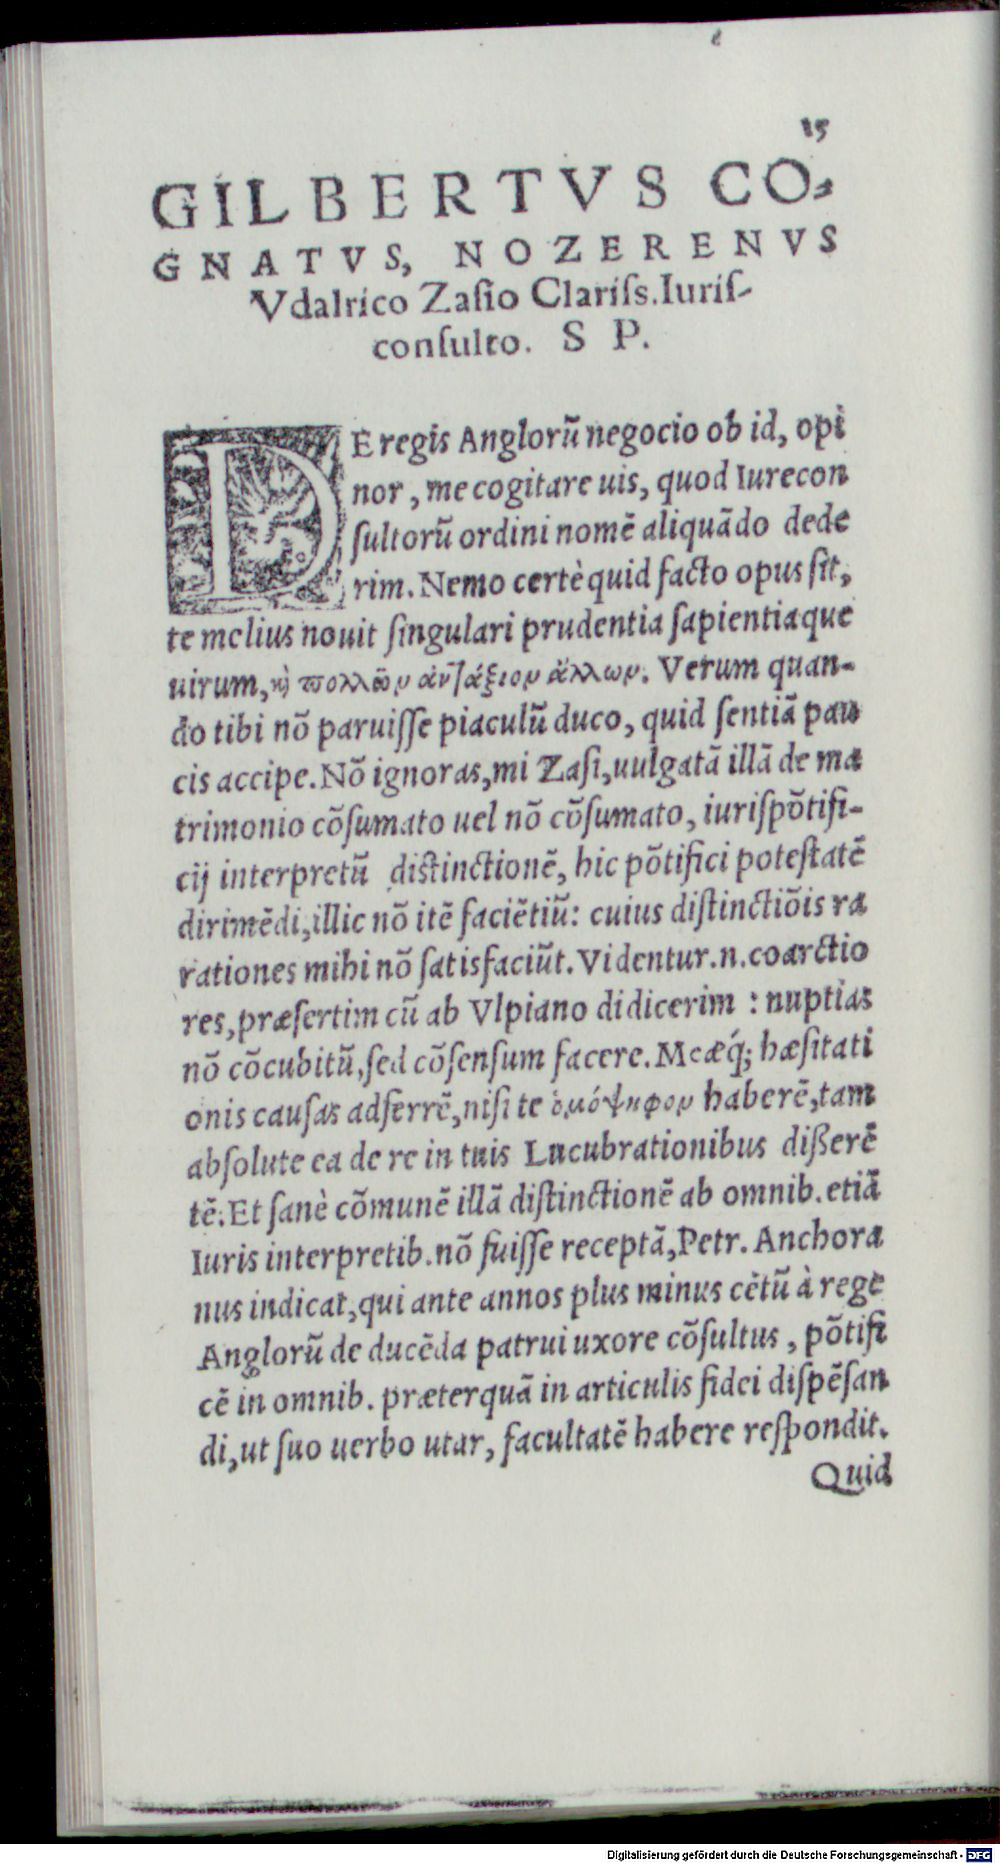 15
GILBERTVS CO-
GNATVS, NOZERENVS
Vdalrico Zasio Clariss. Iuris-
consulto. S P.
DE regis Anglorũ negocio ob id, opi
nor, me cogitare uis, quod Iurecon
sultorũ ordini nomẽ aliquãdo dede
rim. Nemo certè quid facto opus sit,
te melius nouit singulari prudentia sapientiaque
uirum, πολλῶν ἀντάξιον ἄλλων. Verum quan-
do tibi nõ paruisse piaculũ duco, quid sentiã pau
cis accipe. Nõ ignoras, mi Zasi, uulgatã illã de ma
trimonio cõsumato uel nõ cõsumato, iurispõtifi-
cij interpretũ distinctionẽ, hic põtifici potestatẽ
dirimẽdi, illic nõ itẽ faciẽtiũ: cuius distinctiõis ra
rationes mihi nõ satisfaciũt. Videntur.n.coarctio
res, præsertim cũ ab Vlpiano didicerim : nuptias
nõ cõcubitũ, sed cõsensum facere. Meæq́; hæsitati
onis causas adferrẽ, nisi te ὁμόψηφον haberẽ, tam
absolute ea de re in tuis Lucubrationibus dißerẽ
tẽ. Et sanè cõmunẽ illã distinctionẽ ab omnib. etiã
Iuris interpretib. nõ fuisse receptã, Petr. Anchora
nus indicat, qui ante annos plus minus cẽtũ à rege
Anglorũ de ducẽda patrui uxore cõsultus, põtifi
cẽ in omnib. præterquã in articulis fidei dispẽsan
di, ut suo uerbo utar, facultatẽ habere respondit.
Quid
Digitalisierung gefördert durch die Deutsche Forschungsgemeinschaft - DFG